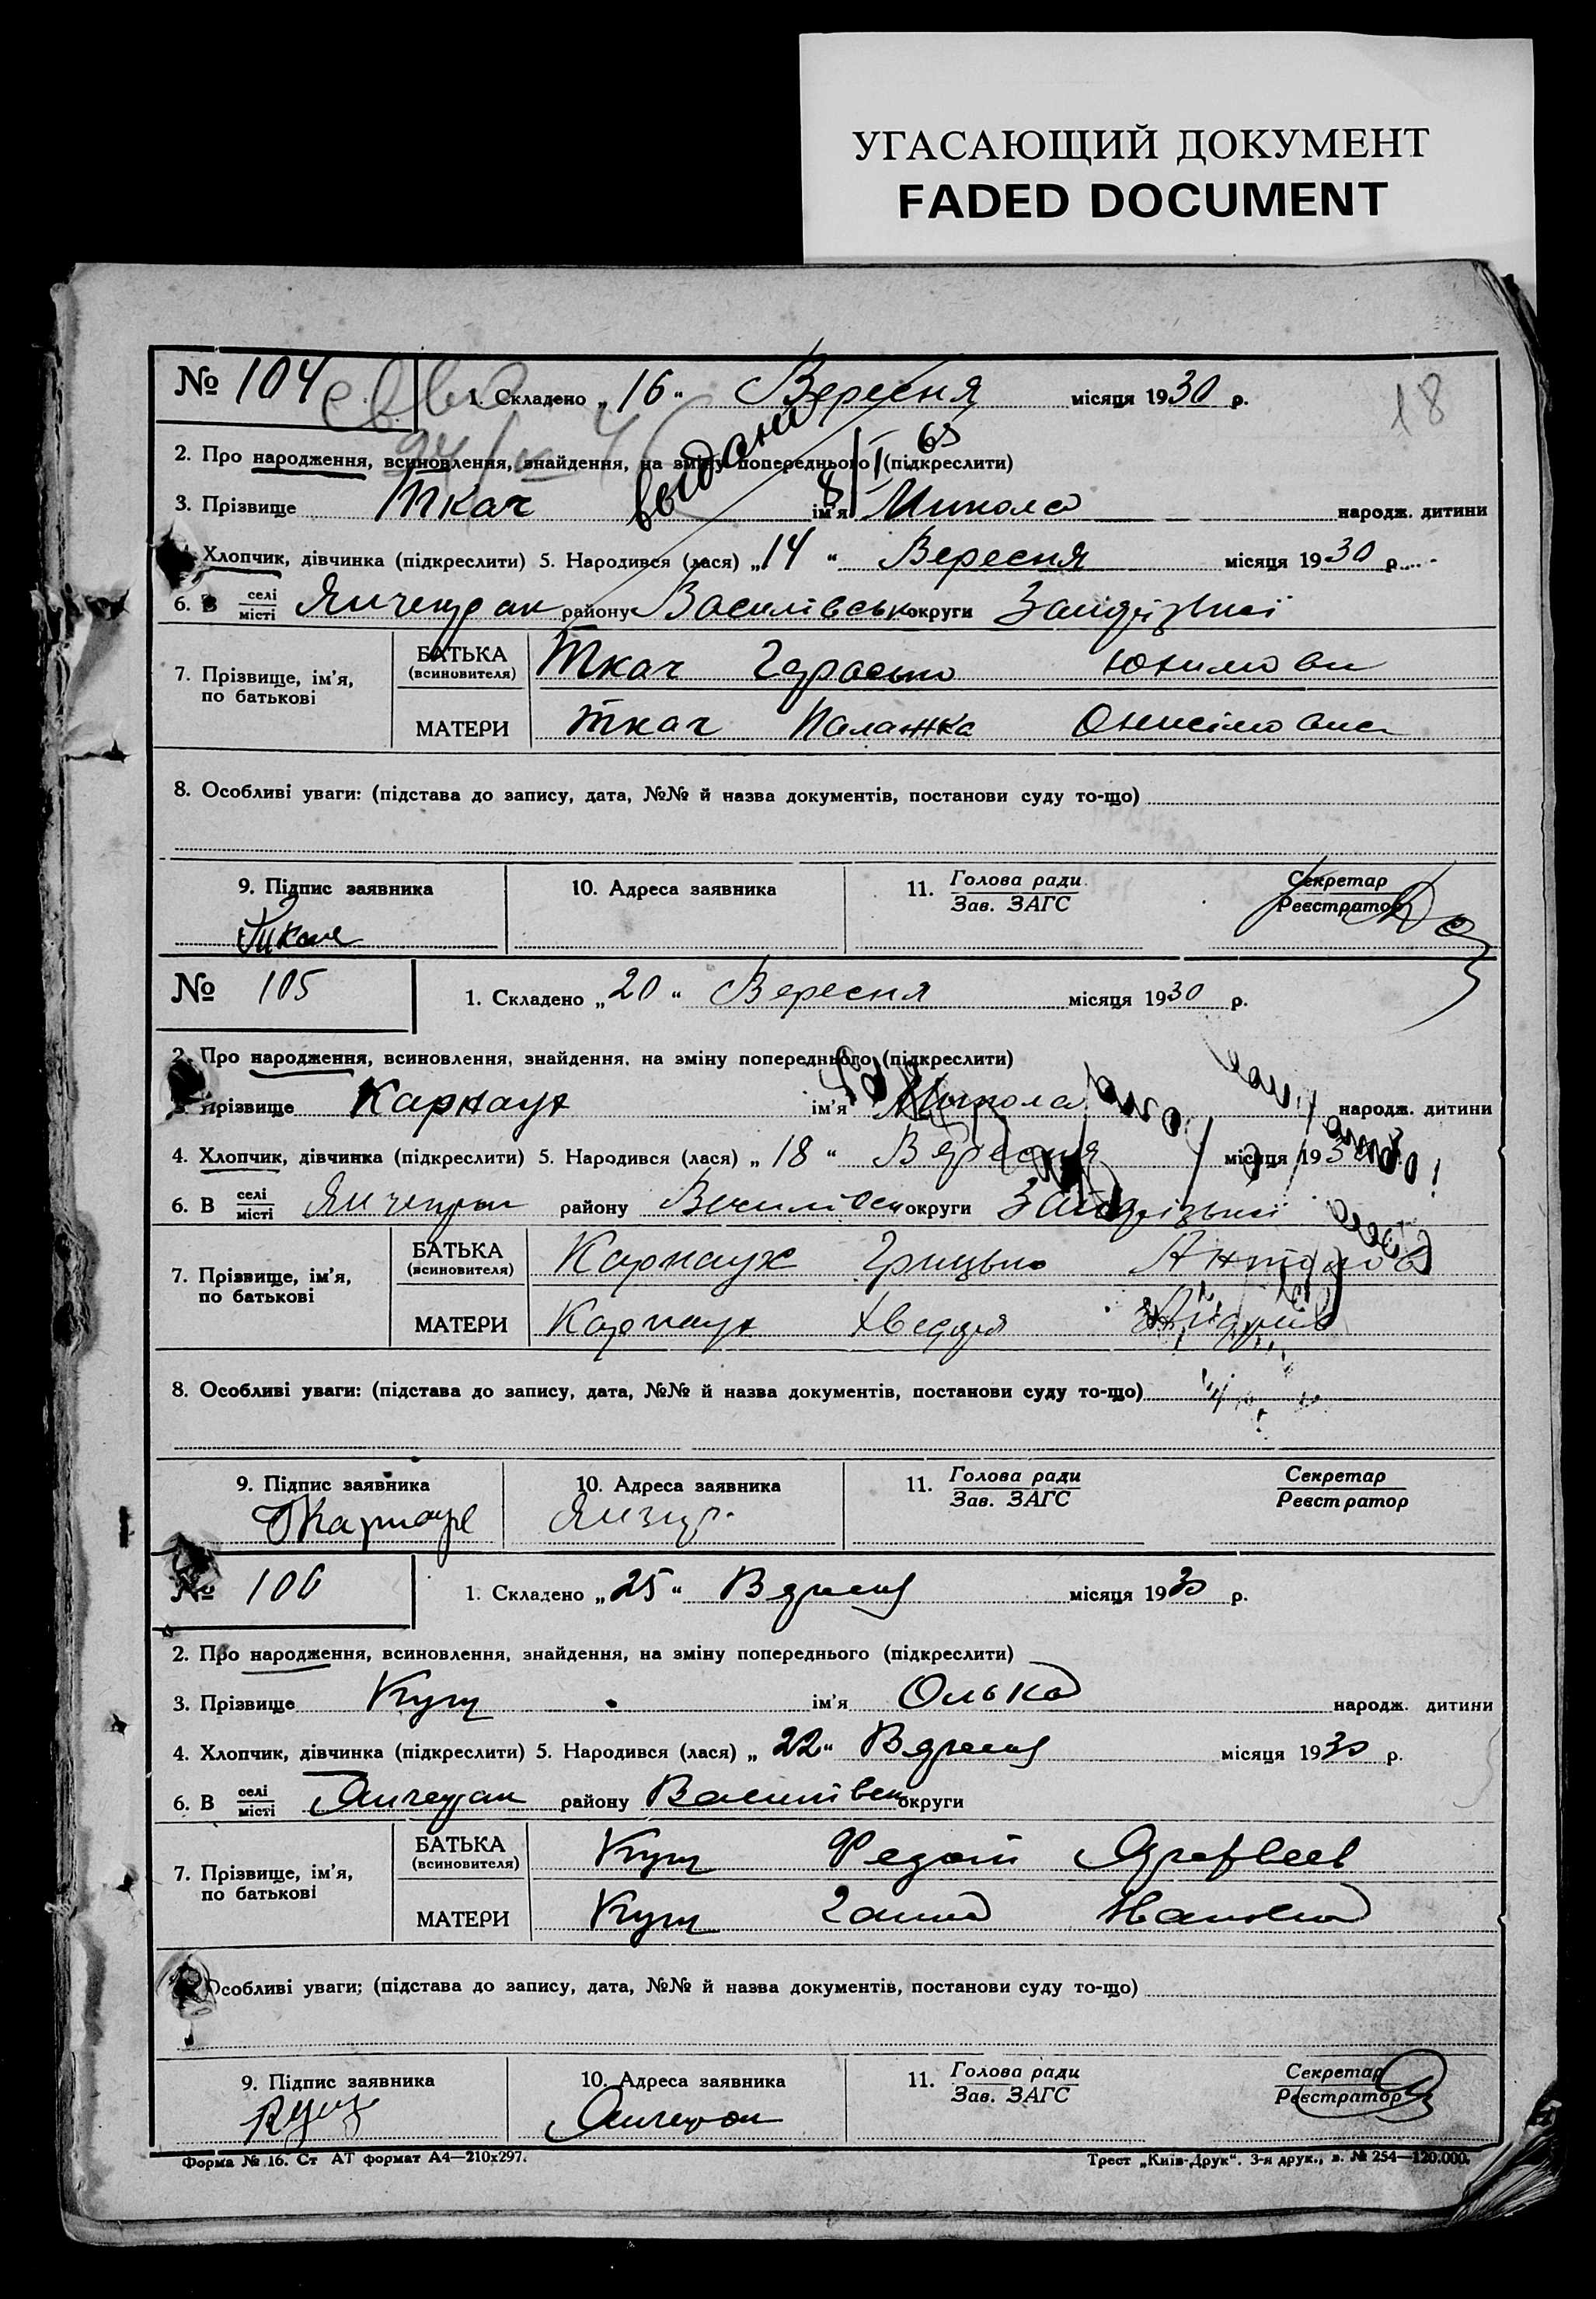 УГАСАЮЩИЙ ДОКУМЕНТ
FADED DOCUMENT
18
№ 104
1. Складено „16“ Вересня місяця 1930 р.
выдано
63
2. Про народження, всиновлення, знайдення, на зміну попереднього (підкреслити)
3. Прізвище Ткач ім'я Микола народж. дитини
Хлопчик, дівчинка (підкреслити) 5. Народився (лася) „14“ Вересня місяця 1930 р.
6. В селі місті Янчекрак району Василівськ округи Запорізької
7. Прізвище, ім'я, по батькові
БАТЬКА (всиновителя) Ткач Герасько Юхимови
МАТЕРИ Ткач Палажка Онисімовна
8. Особливі уваги: (підстава до запису, дата, №№ й назва документів, постанови суду то-що)
9. Підпис заявника
10. Адреса заявника
11. Голова ради Зав. ЗАГС
Секретар Реєстратор
Ткач
№ 105
1. Складено „20“ Вересня місяця 1930 р.
2. Про народження, всиновлення, знайдення, на зміну попереднього (підкреслити)
3. Прізвище Карнаух ім'я Микола народж. дитини
4. Хлопчик, дівчинка (підкреслити) 5. Народився (лася) „18“ Вересня місяця 193
6. В селі місті Янчекрак району Василівськ округи Запорізької
7. Прізвище, ім'я, по батькові
БАТЬКА (всиновителя) Карнаух Грицько Антонов
МАТЕРИ Карнаух Хведря
8. Особливі уваги: (підстава до запису, дата, №№ й назва документів, постанови суду то-що)
9. Підпис заявника
10. Адреса заявника
11. Голова ради Зав. ЗАГС
Секретар Реєстратор
Карнаух
№ 106
1. Складено „25“ Вересня місяця 1930 р.
2. Про народження, всиновлення, знайдення, на зміну попереднього (підкреслити)
3. Прізвище Кущ ім'я Олька народж. дитини
4. Хлопчик, дівчинка (підкреслити) 5. Народився (лася) „22“ Вересня місяця 1930 р.
6. В селі місті Янчекрак району Василівськ округи
7. Прізвище, ім'я, по батькові
БАТЬКА (всиновителя) Кущ Федот
МАТЕРИ Кущ Ганна Иванівна
Особливі уваги; (підстава до запису, дата, №№ й назва документів, постанови суду то-що)
9. Підпис заявника
10. Адреса заявника
11. Голова ради Зав. ЗАГС
Секретар Реєстратор
Кущ Янчекрак
Форма № 16. Ст АТ формат А4—210х297.
Трест „Київ-Друк“. 3-я друк., з. № 254—120.000.